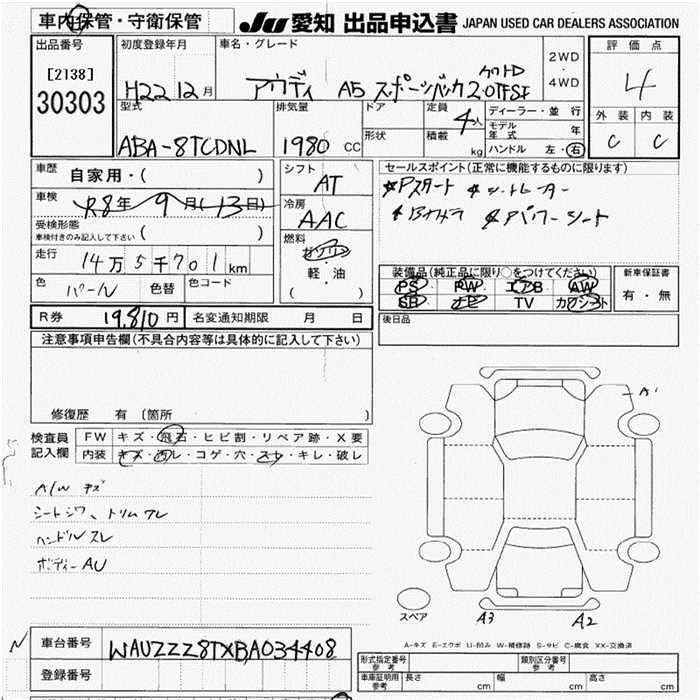 車内保管・守衛保管
JU 愛知 出品申込書 JAPAN USED CAR DEALERS ASSOCIATION
出品番号
[2138]
30303
初度登録年月
H22 12月
車名・グレード
アウディ A5 スポーツバック 2.0TFSI
クワトロ
2WD
4WD
評価点
4
外装 内装
C C
型式
ABA-8TCDNL
排気量
1980 CC
ドア
形状
定員 4人
積載 kg
ディーラー・並行
モデル年式 年
ハンドル 左・右
車歴
自家用・( )
車検
R8年 9月(13日)
受検形態
車検付きのみ記入して下さい ( )
走行
14万5千701km
色 パール 色替 色コード
シフト
AT
冷房
AAC
燃料
ガソリン
軽・油
( )
セールスポイント(正常に機能するものに限ります)
Pスタート シートヒーター
Bカメラ パワーシート
装備品(純正品に限り○をつけてください)
PS PW エアB AW
SR ナビ TV カワシート
新車保証書
有・無
後日品
R券 19,810円 名変通知期限 月 日
注意事項申告欄(不具合内容等は具体的に記入して下さい)
修復歴 有 〔箇所 〕
検査員記入欄
FW キズ・飛石・ヒビ割・リペア跡・X要
内装 キズ・汚レ・コゲ・穴・スレ・キレ・破レ
A/W キズ
シートシワ、トリムスレ
ハンドルスレ
ボディーAU
A1
スペア
A3
A2
A-キズ E-エクボ U-凹み W-補修跡 S-サビ C-腐食 XX-交換済
車台番号
WAUZZZ8TXBA034408
登録番号
形式指定番号 参考
類別区分番号 参考
車庫証明用 参考
長さ cm 幅 cm 高さ cm